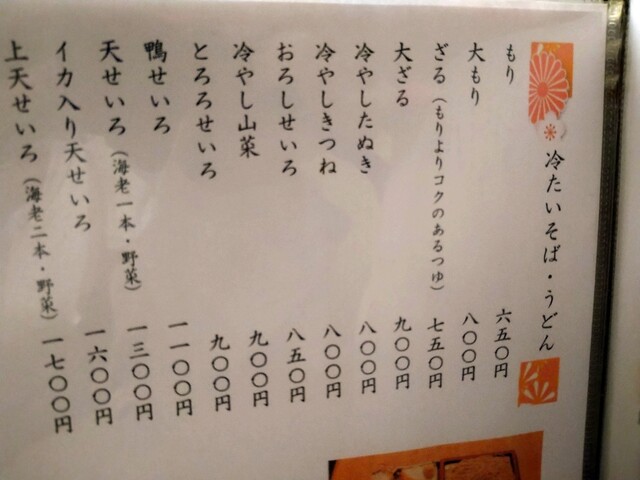 冷たいそば・うどん
もり 六五〇円
大もり 八〇〇円
ざる（もりよりコクのあるつゆ） 七五〇円
大ざる 九〇〇円
冷やしたぬき 八〇〇円
冷やしきつね 八〇〇円
おろしせいろ 八五〇円
冷やし山菜 九〇〇円
とろろせいろ 九〇〇円
鴨せいろ 一一〇〇円
天せいろ（海老一本・野菜） 一三〇〇円
イカ入り天せいろ 一六〇〇円
上天せいろ（海老二本・野菜） 一七〇〇円